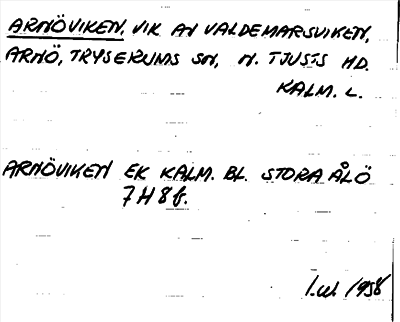 ARNÖVIKEN, VIK AV VALDEMARSVIKEN,
ARNÖ, TRYSERUMS SN, N. TJUSTS HD.
KALM. L.
ARNÖVIKEN EK KALM. BL. STORA ÅLÖ
7H8f.
1958